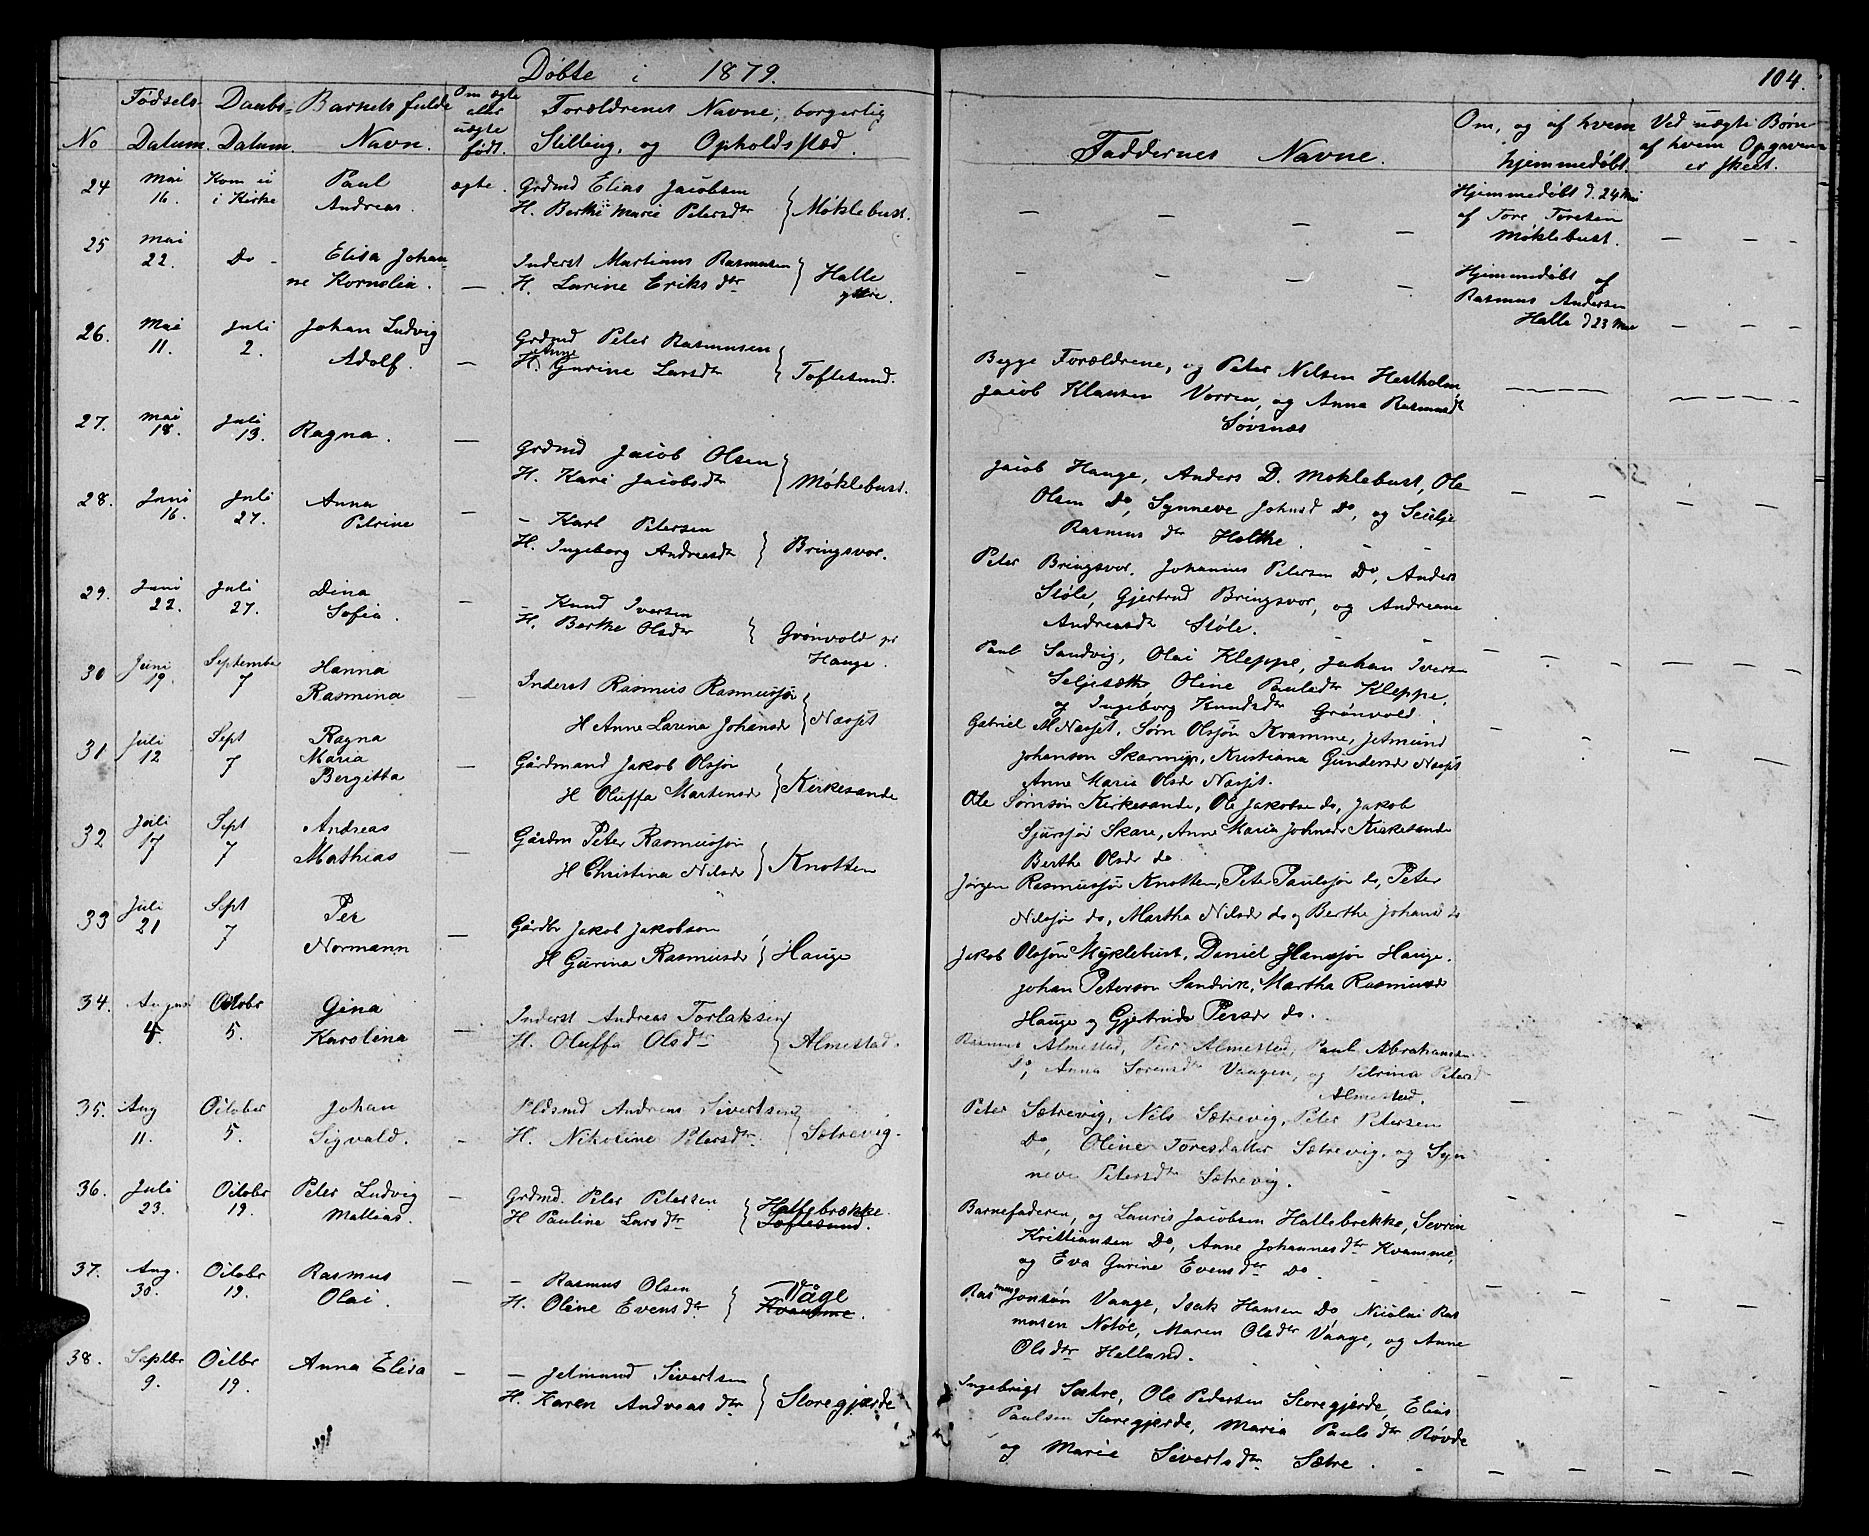 Døbte i 1879.
104.
No
Fødsels Datum.
Daabs- Datum.
Barnets fulde Navn.
Om ægte eller uægte født.
Forældrenes Navne, borgerlig Stilling, og Opholdssted.
Faddernes Navne.
Om, og af hvem hjemmedøbt.
Ved uægte Børn af hvem Opgaven er skeet.
24 Mai 16. Kom ei i Kirke Paul Andreas. ægte.
Grdmd Elias Jacobsen
H. Berthe Marie Petersdtr } Møklebust.
— — — —
Hjemmedøbt d. 24 Mai
af Tore Torsten
Møklebust.
25 Mai 22. Do - Elisa Johanne Kornelia. —
Inderst Martinus Rasmusen
H. Larine Eriksdtr } Halle ytre.
— — — —
Hjemmedøbt af
Rasmus Andersen
Halle d 23 Mai
26. Mai 11. Juli 2. Johan Ludvig Adolf. —
Grdmd Peter Rasmusen
H. Anne Gurine Larsdtr } Toftesund.
Begge Forældrene, og Peter Nilsen Hestholm,
Jacob Klausen Vorren, og Anna Rasmusdtr
Søvsnæs
27. Mai 18. Juli 13. Ragna. —
Grdmd Jacob Olsen
H. Kari Jacobsdtr } Møklebust.
Jacob Hauge, Anders D. Moklebust, Ole
Olsen Do, Synneve Johnsd Do, og
Rasmusdtr Holthe.
28. Juni 16. Juli 27. Anna Petrine —
— Karl Petersen
H. Ingeborg Andreasdtr } Bringsvor.
Peter Bringsvor, Johannes Petersen Do, Anders
Støle, Gjertrud Bringsvor, og Andreane
Andreasdtr Støle.
29. Juni 22. Juli 27. Dina Sofia. —
— Knud Iversen
H. Berthe Olsdtr } Grønvold pr Hauge.
Paul Sandvig, Olai Kleppe, Johan Iversen
Seljesætth, Oline Paulsdtr Kleppe,
og Ingeborg Knudsdtr Grønvold.
30 Juni 19. September 7 Hanna Rasmina —
Inderst Rasmus Rasmussøn
H Anne Larena Johansdr } Næsset
Gabriel M. Næsset, Sørn Olssøn Kvamme, Jetmund
Johanson , Kristiana Gundersdr Næsset
Anne Maria Olsdr Næsset.
31 Juli 12 Sept 7 Ragna Maria Bergitta —
Gårdmand Jakob Olssøn
H Oluffa Martensdr } Kirkesande
Ole Sørnsøn Kirkesande, Ole Jakobsn do, Jakob
Sjurssøn Skare, Anne Maria Johnsdr Kirkesande
Berthe Olsdr do.
32 Juli 17 Sept 7 Andreas Mathias —
Gårdm Peter Rasmussøn
H Christina Nilsdr } Knotten
Jørgen Rasmussøn Knotten, Peter Paulssøn do, Peter
Nilssøn do, Martha Nilsdr do og Berthe Johansd do
33 Juli 21 Sept 7 Per Normann —
Gårdbr Jakob Jakobsøn
H Gurina Rasmusdr } Hauge
Jakob Olssøn Myklebust, Daniel Hanssøn Hauge.
Johan Peterson Sandvik, Martha Rasmusdr
Hauge og Gjertrude Persdr do.
34. August 4. Octobr 5. Gina Karolina —
Inderst Andreas Torlaksen
H. Oluffa Olsdtr } Almestad.
Rasmus Almestad, Peer Almestad, Paul Abrahamsen
Do, Anna Sørensdtr Vaagen, og Petrina Petersdtr
Almestad.
35. Aug 11. October 5. Johan Sigvald. —
Pldsmd Andreas Sivertsen
H. Nikoline Petersdtr } Sætrevig.
Peter Sætrevig, Nils Sætrevig, Peter Petersen
Do, Oline Toresdatter Sætrevig, og Synneve Petersdtr Sætrevig.
36. Juli 23. Octobr 19. Peter Ludvig Mattias. —
Grdmd. Peter Petersen
H Pauline Larsdtr } Hallebrekke. Toftesund.
Barnefaderen, og Lauris Jacobsen Hallebrekke, Sevrin
Kristiansen Do, Anne Johannesdtr Kvamme,
og Eva Gurine Evensdtr Do.
37. Aug. 30. Octobr 19. Rasmus Olai. —
— Rasmus Olsen
H. Oline Evensdtr } Våge Kvamme.
Rasmus Jonsøn Vaage, Isak Hansen Do, Nicolai Rasmusen Notøe, Maren Olsdtr Vaage, og Anne
Olsdtr Helland.
38. Septbr 9. Octbr 19. Anna Elisa —
— Jetmund Sivertsen
H. Karen Andreasdtr } Storegjærde
Ingebrigt Sætre, Ole Pedersen Storegjerde, Elias
Paulsen Storegjerde, Maria Paulsdtr Røvde
og Marie Sivertsdtr Sætre.